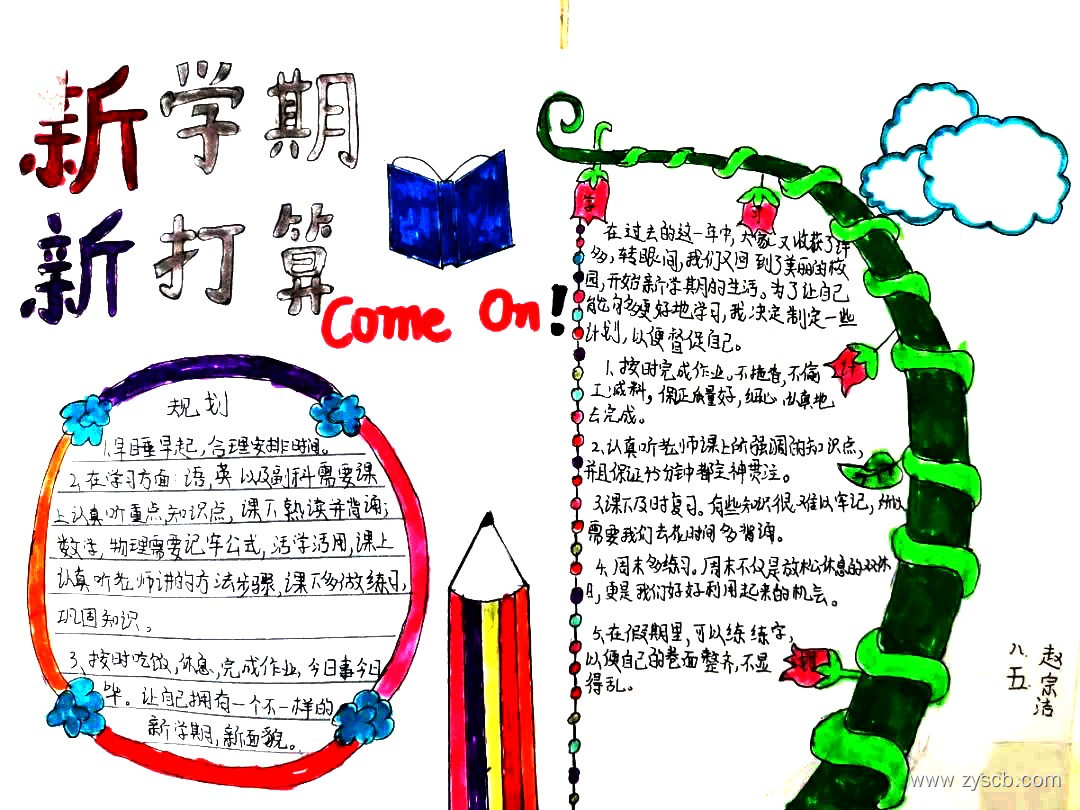 新学期
新打算
Come On!
规划
1.早睡早起,合理安排时间。
2.在学习方面:语,英以及副科需要课
上认真听重点,知识点,课下熟读并背诵;
数学,物理需要记牢公式,活学活用,课上
认真听老师讲的方法步骤,课下多做练习,
巩固知识。
3、按时吃饭,休息,完成作业,今日事今日
毕。让自己拥有一个不一样的
新学期,新面貌。
学
习
在过去的这一年中,大家又收获了许
多,转眼间,我们又回到了美丽的校
园,开始新学期的生活。为了让自己
能够多更好地学习,我决定制定一些
计划,以便督促自己。
1、按时完成作业。不拖沓,不偷
工减料,保证质量好,细心认真地
去完成。
2.认真听老师课上所强调的知识点,
并且保证45分钟都全神贯注。
3.课下及时复习。有些知识很难以牢记,所以
需要我们去花时间多背诵。
4、周末多练习。周末不仅是放松休息的双休
日,更是我们好好利用起来的机会。
5、在假期里,可以练练字,
以便自己的卷面整齐,不显
得乱。
八、五
赵宗洁
www.zyscb.com